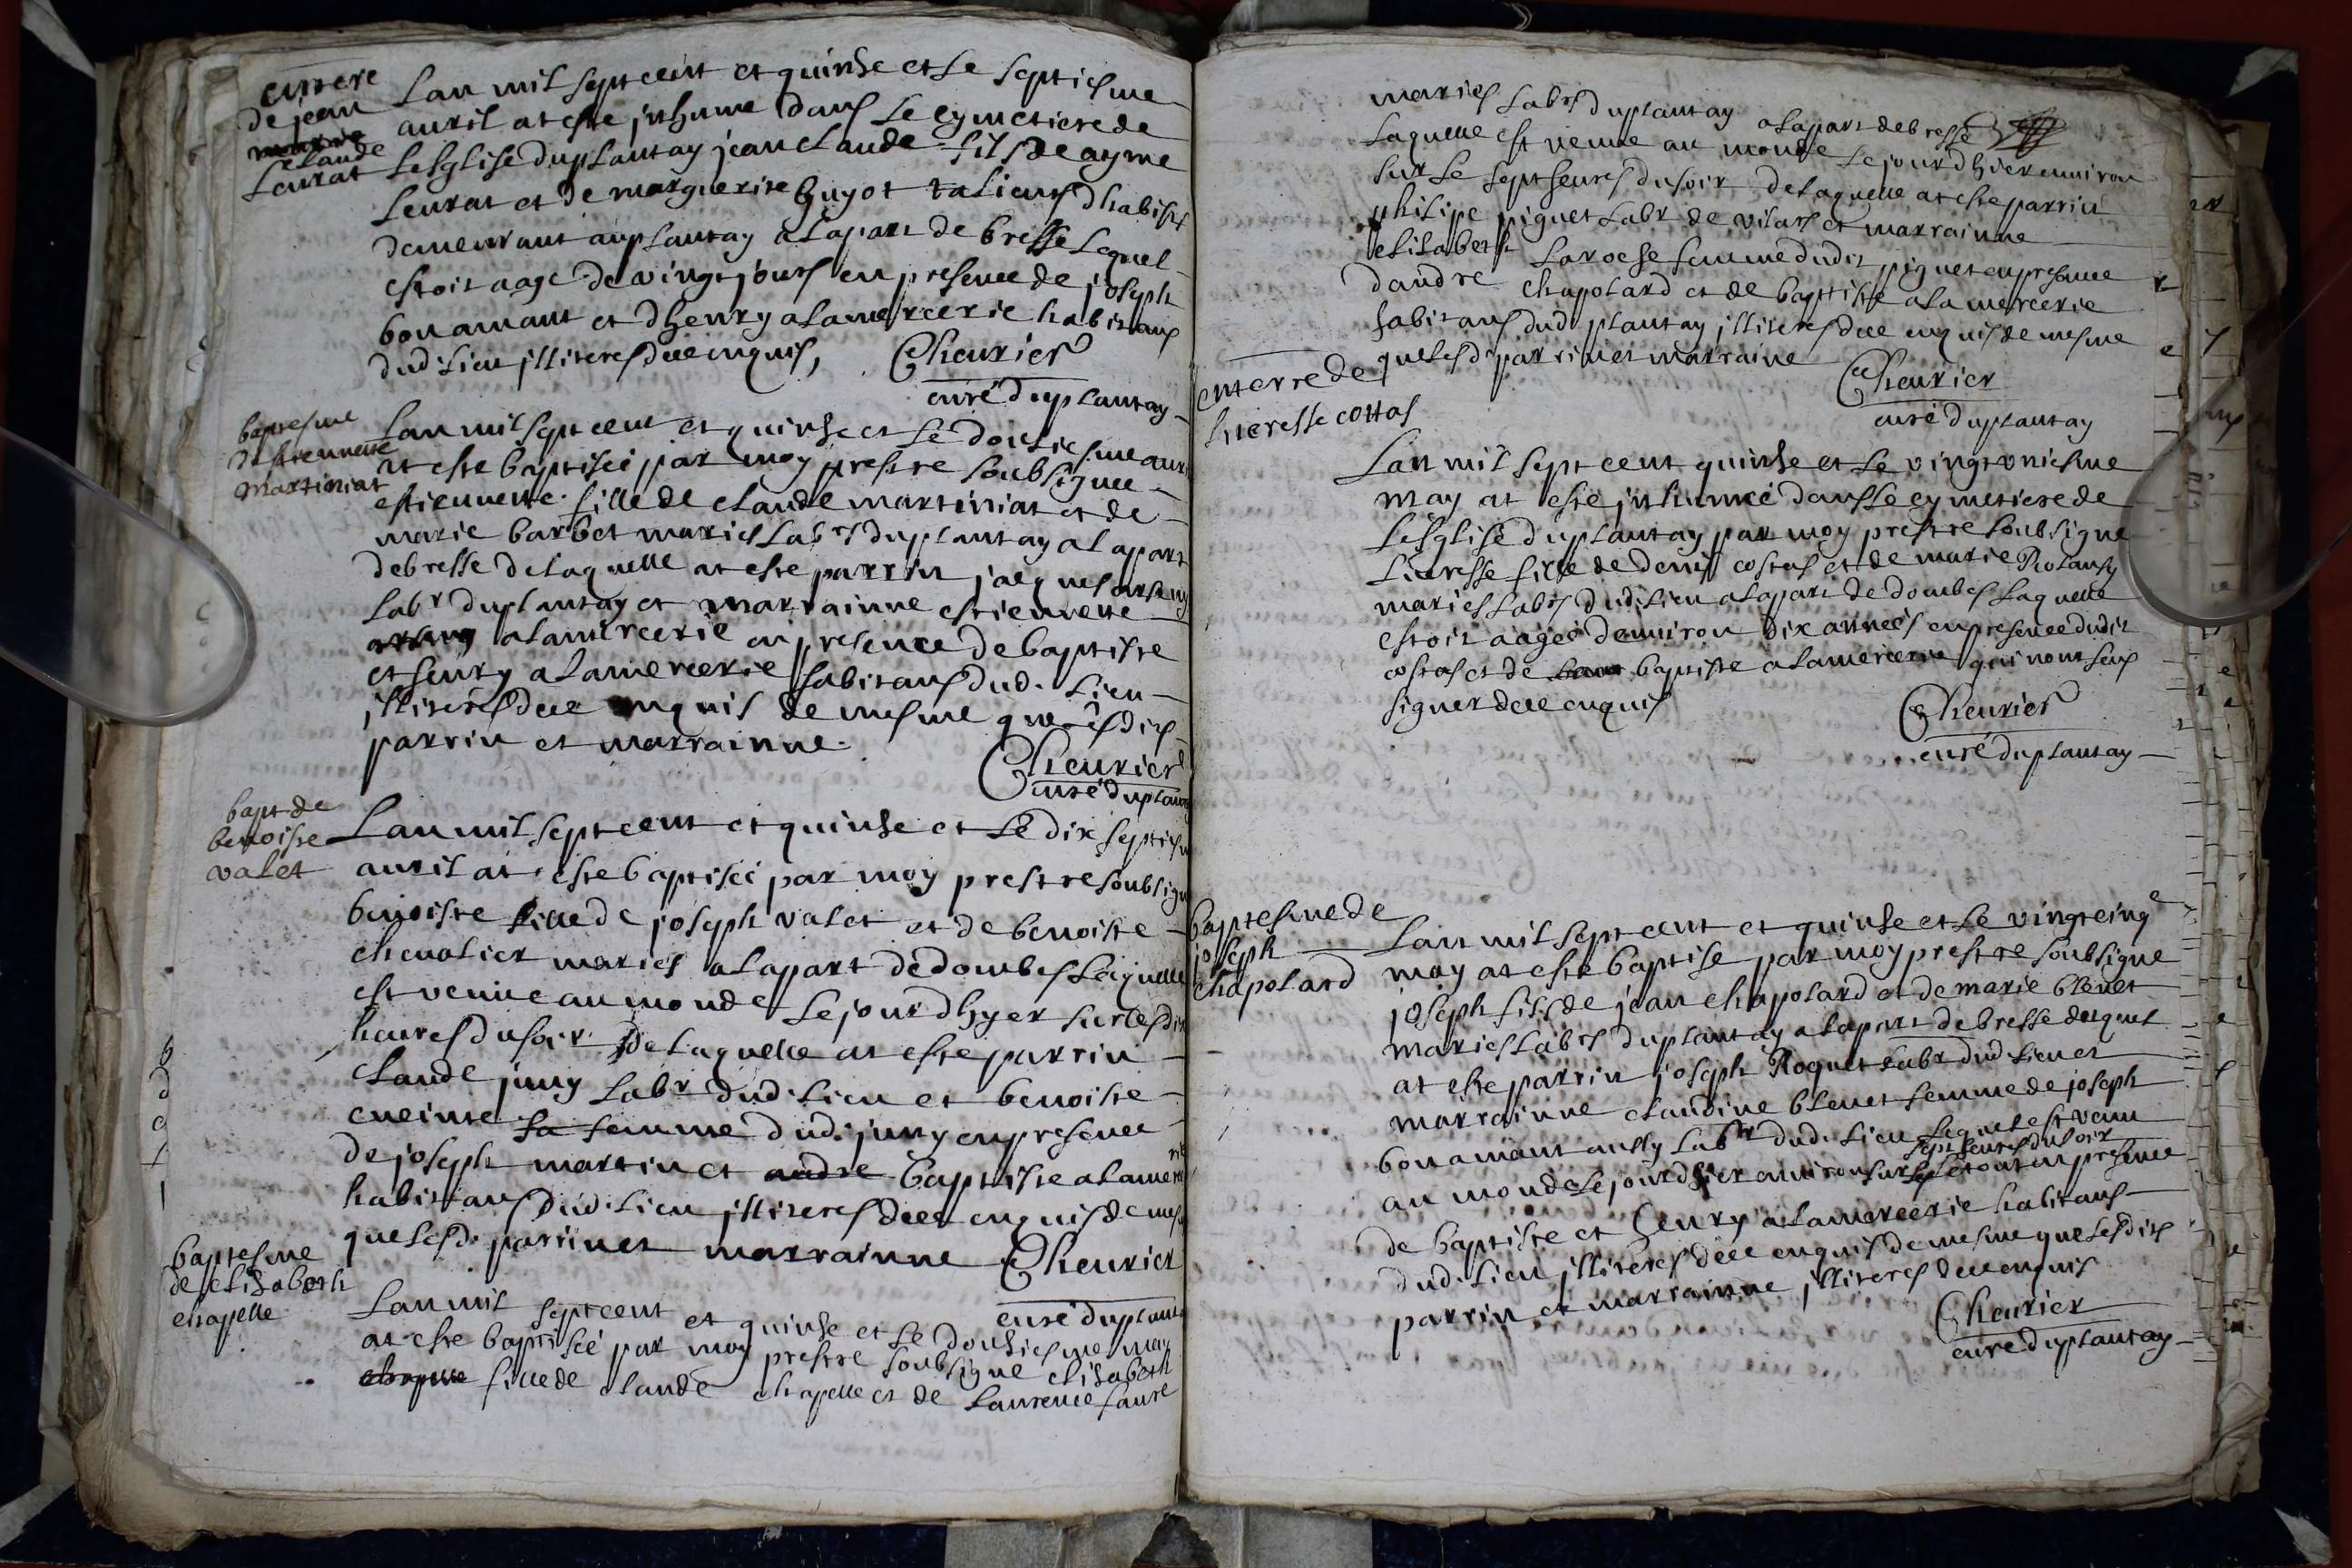 enterre
de jean
claude
Leurat
Lan mil sept cent et quinse et le septiesme
auril at este jnhume dans le cymetiere de
Lesglise du plantay jean claude fils de ayme
Leurat et de marguerite guyot
demeurant au plantay a la part de bresse lequel
estoit aage de vingt jours en presence de joseph
bonamant et dhenry alamercerie habitans
dud. lieu jlliteres de ce enquis,
Cheurier
curé du plantay
baptesme
destiennette
martiniat
Lan mil sept cent et quinse et le dousiesme auril
at este baptiseé par moy prestre soubsigne
estiennette fille de claude martiniat et de
marie barbet mariés labrs du plantay a la part
de bresse de laquelle at este parrin jacques
labr du plantay et marrainne estiennette
alamercerie en presence de baptiste
et henry alamercerie habitans dud. lieu
jlliteres de ce enquis de mesme que lesdits
parrin et marrainne
Cheurier
curé du plantay
bapt de
benoiste
valet
Lan mil sept cent et quinse et le dix septiesme
auril at este baptiseé par moy prestre soubsigne
benoiste fille de joseph valet et de benoiste
cheualier mariés a la part de dombes laquelle
est venue au monde le jour dhyer sur les dix
heures du soir de laquelle at este parrin
claude juny labr dud. lieu et benoiste
cueinse sa femme dud. juny en presence
de joseph martin et andre baptiste alamercerie
habitans dud. lieu jlliteres de ce enquis de mesme
que lesd. parrin et marrainne Cheurier
curé du plantay
baptesme
de elisabeth
chapelle
Lan mil sept cent et quinse et le dousiesme may
at este baptiseé par moy prestre soubsigne elisabeth
chapelle fille de claude chapelle et de laurence faure
mariés labrs du plantay a la part de bresse
laquelle est venue au monde le jour dhier enuiron
sur le sept heures du soir de laquelle at este parrin
philipe piguet labr de vilars et marrainne
elisabeth laroche femme dudit piguet en presence
dandre chapolard et de baptiste alamercerie
habitans dud. plantay jlliteres de ce enquis de mesme
que lesd. parrin et marraine
Cheurier
curé du plantay
enterre de
lucresse cottas
Lan mil sept cent quinse et le vingt vniesme
may at este jnhumeé dans le cymetiere de
Lesglise du plantay par moy prestre soubsigne
Lucresse fille de denis costas et de marie
mariés labrs dud. lieu a la part de dombes laquelle
estoit aageé denuiron dix anneés en presence dudit
costas et de baptiste alamercerie qui nont sceus
signer de ce enquis
Cheurier
curé du plantay
baptesme de
joseph
chapolard
Lan mil sept cent et quinse et le vingt cinqe
may at este baptise par moy prestre soubsigne
joseph fils de jean chapolard et de marie bleuet
mariés labrs du plantay a la part de bresse duquel
at este parrin joseph Roquet labr dud. lieu et
marrainne claudine bleuet femme de joseph
bonamant aussy labr dud. lieu lequel est venu
au monde le jour dhier enuiron sur les sept heures du soir en presence
de baptiste et henry alamercerie habitans
dud. lieu jlliteres de ce enquis de mesme que lesdits
parrin et marrainne jlliteres de ce enquis
Cheurier
curé du plantay